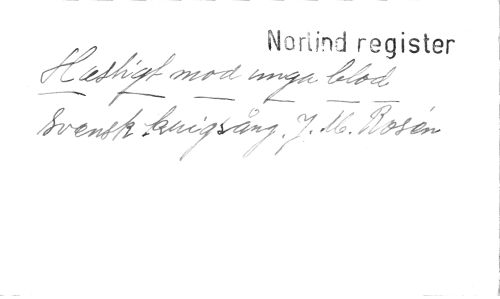 Norlind register
Hastigt mod unga blod
Svensk krigssång. J. M. Rosén